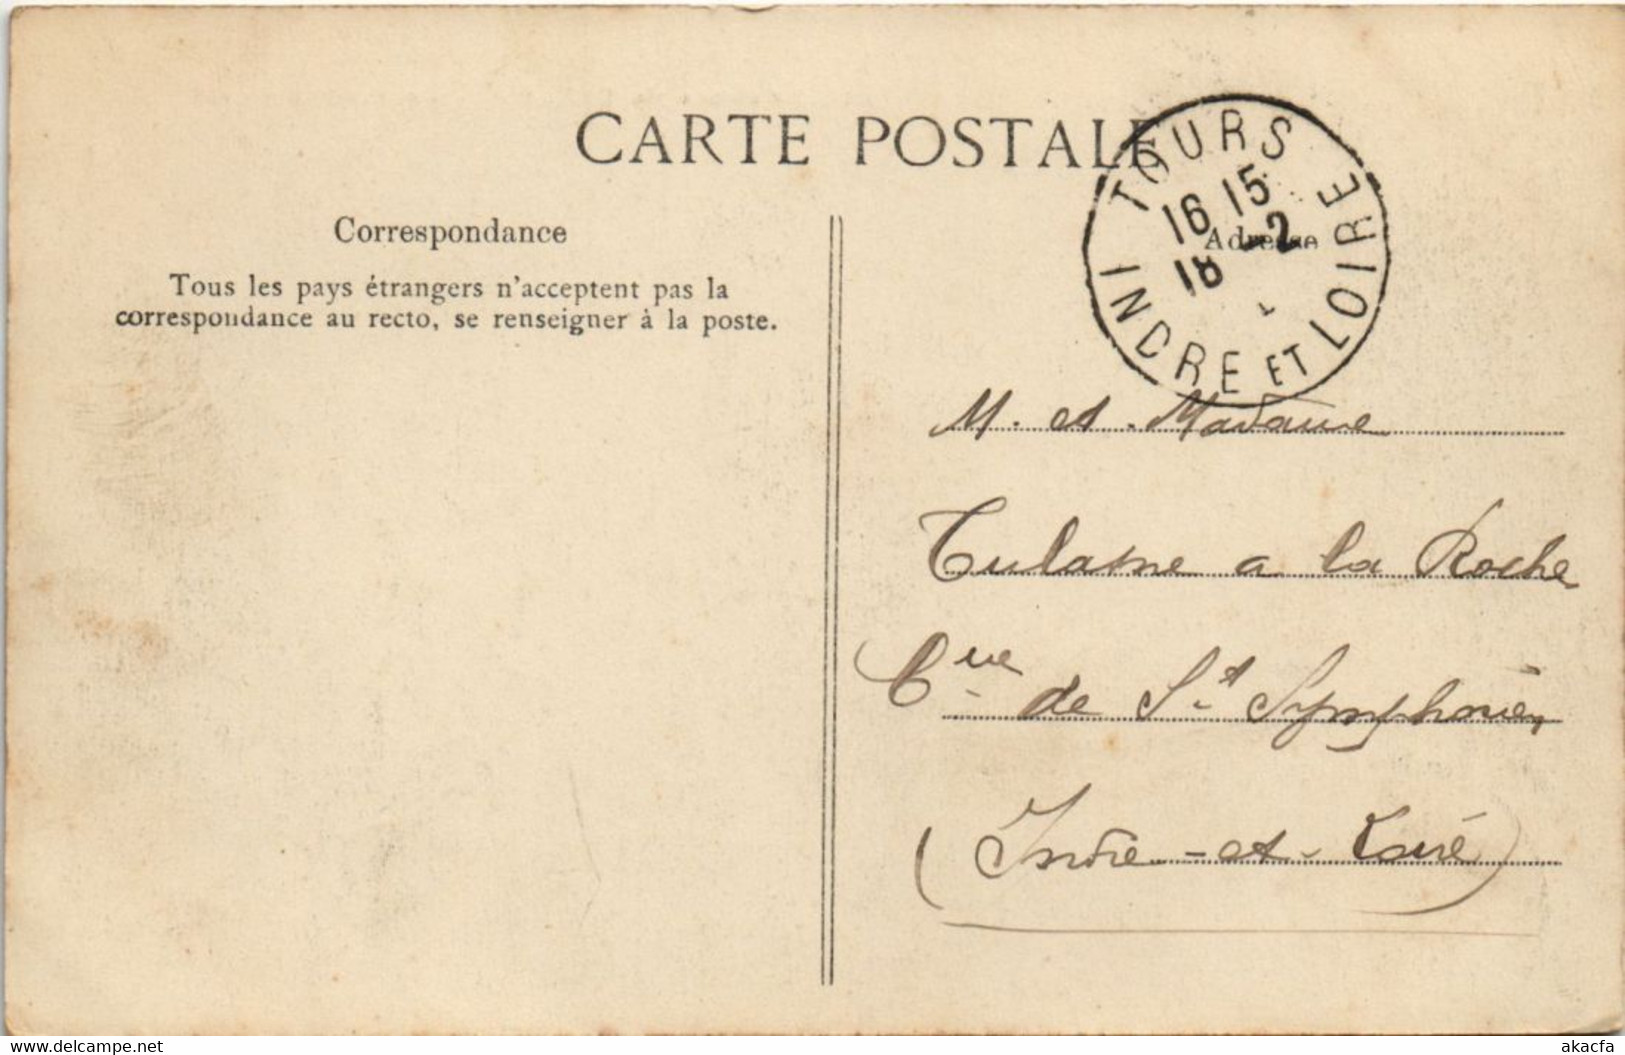 CARTE POSTALE
Correspondance
Tous les pays étrangers n'acceptent pas la
correspondance au recto, se renseigner à la poste.
TOURS
16 15
18 -2
INDRE ET LOIRE
Adresse
M. et Madame
Tulasne a la Roche
Cne de St Symphorien
(Indre-et-Loire)
akacfa